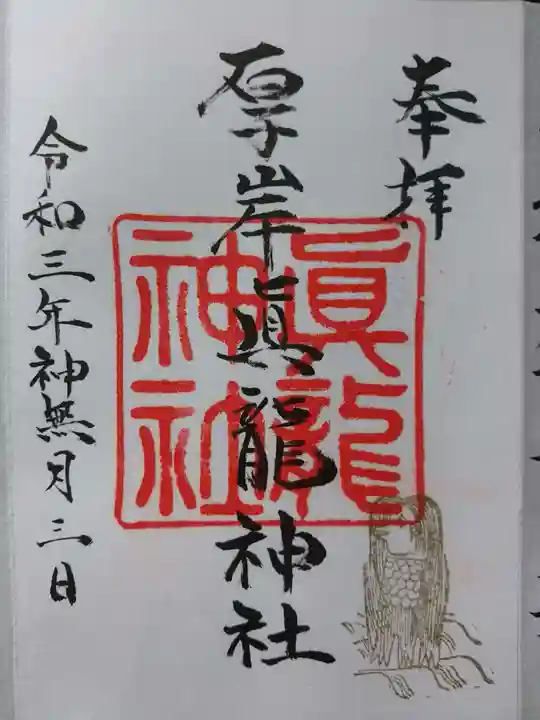 奉拝
厚岸眞龍神社
眞龍神社
令和三年神無月三日